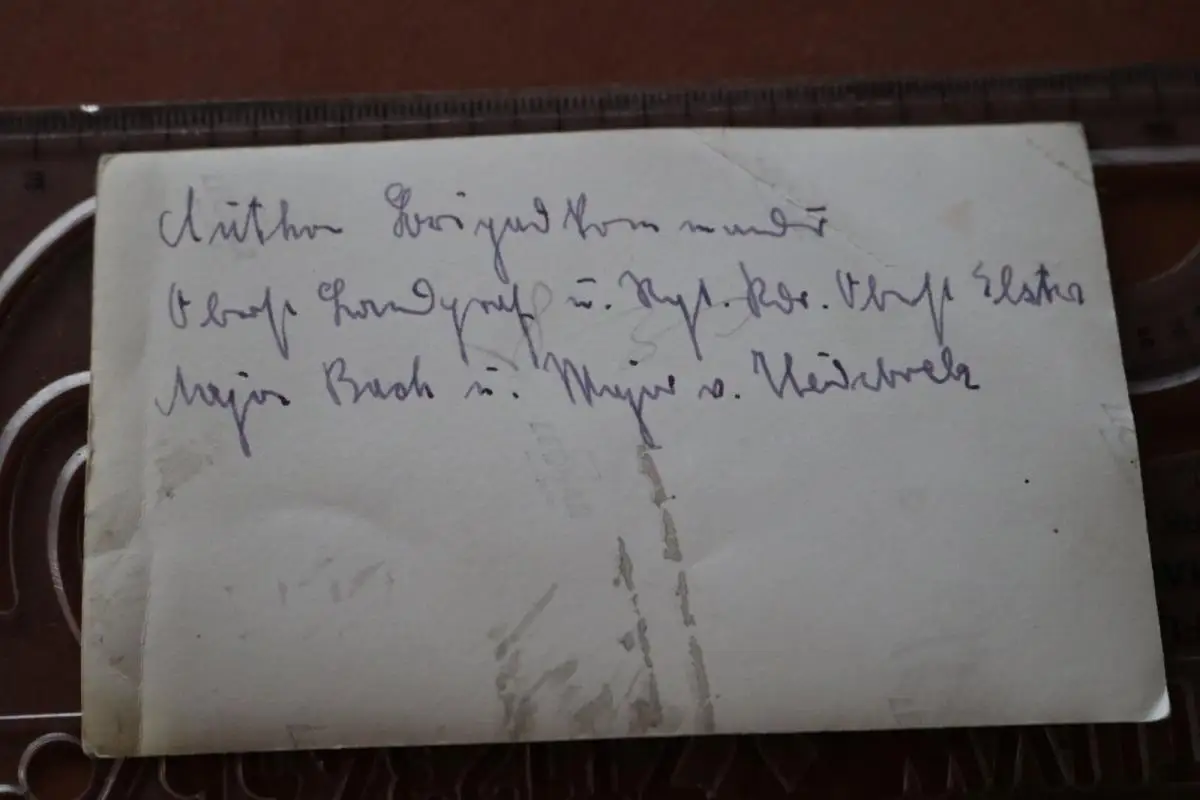 Brigadkommandr
Oberst Landgraf u. Rgt. Kdr. Oberst Elster
Major Bach u. Major v. Heidebreck